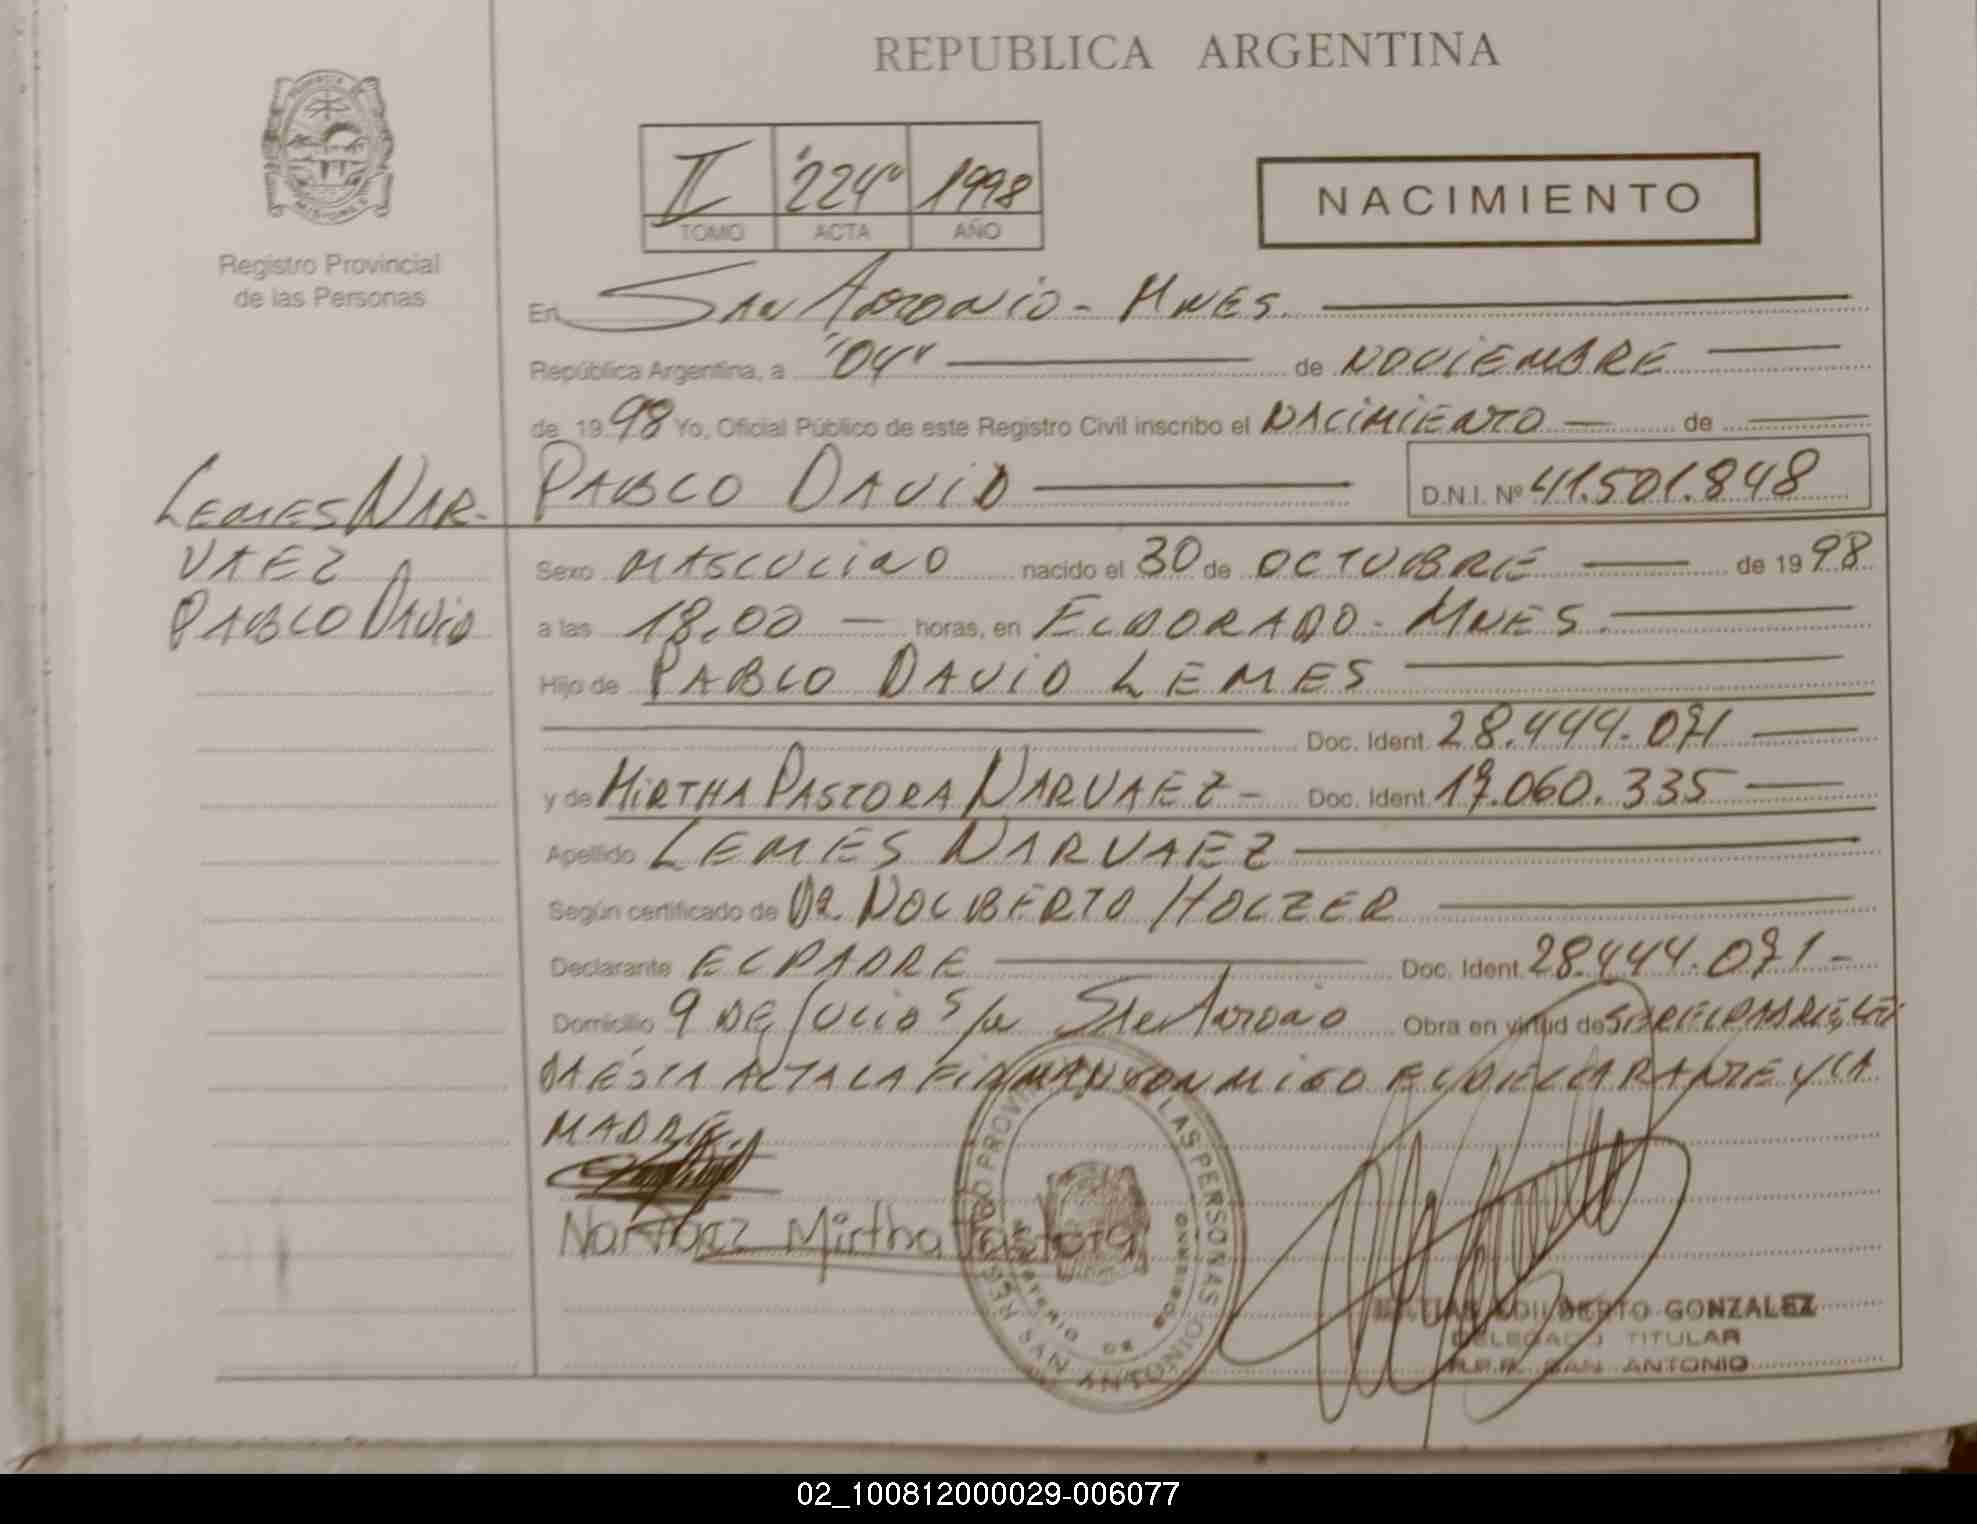 REPUBLICA ARGENTINA
PROVINCIA
MISIONES
Registro Provincial
de las Personas
II "224" 1998
TOMO ACTA AÑO
NACIMIENTO
En SAN ANTONIO - MNES.
República Argentina, a "04" de NOVIEMBRE
de 1998 Yo, Oficial Público de este Registro Civil inscribo el NACIMIENTO de
PABLO DAVID D.N.I. Nº 41.501.848
LEMES NAR-
VAEZ
PABLO DAVID
Sexo MASCULINO nacido el 30 de OCTUBRE de 1998
a las 18,00 horas, en ELDORADO - MNES.
Hijo de PABLO DAVID LEMES
Doc. Ident. 28.444.071
y de MIRTHA PASTORA NARVAEZ - Doc. Ident. 17.060.335
Apellido LEMES NARVAEZ
Según certificado de DR. NOLBERTO HOLZER
Declarante EL PADRE Doc. Ident. 28.444.071 -
Domicilio 9 DE JULIO S/N San Antonio Obra en virtud de SER EL PADRE, LEI
DA ÉSTA ACTA LA FIRMAN CONMIGO EL DECLARANTE Y LA
MADRE.
Narvaez Mirtha Pastora
LAS PERSONAS
ADILBERTO GONZALEZ
DELEGADO TITULAR
R.P.P. SAN ANTONIO
02_100812000029-006077